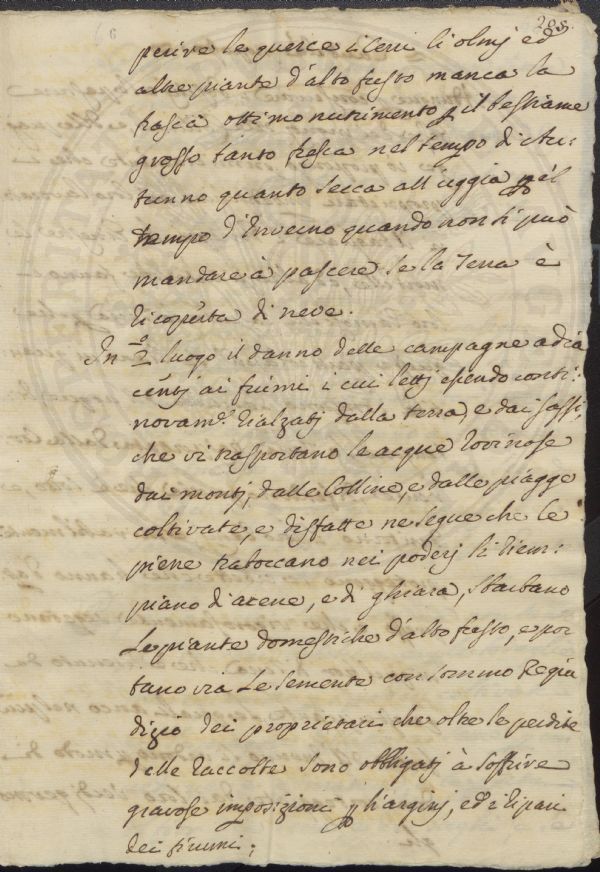 208.
perire le querce i Cerri li olmj ed
altre piante d'alto fusto manca la
frasca ottimo nutrimento p il bestiame
grosso tanto fresca nel tempo di Au:
tunno quanto secca all'uggia p il
tempo d'Inverno quando non si può
mandare à pascere se la Terra è
ricoperta di neve.
In 2.º luogo il danno delle campagne adia
centj ai fiumi i cui lettj essendo conti:
novam.te rialzatj dalla terra, e dai sassi,
che vi trasportano le acque rovinose
dai montj, dalle Colline, e dalle piagge
coltivate, e disfatte ne segue che le
piene traboccano nei poderj li riem:
piano di arene, e di ghiara, sbarbano
Le piante domestiche d'alto fusto, e por
tano via Le Semente con sommo Regiu
dizio dei proprietarj che oltre le perdite
delle raccolte sono obbligatj à soffrire
gravose imposizioni p li arginj, ed i ripari
dei fiumi;